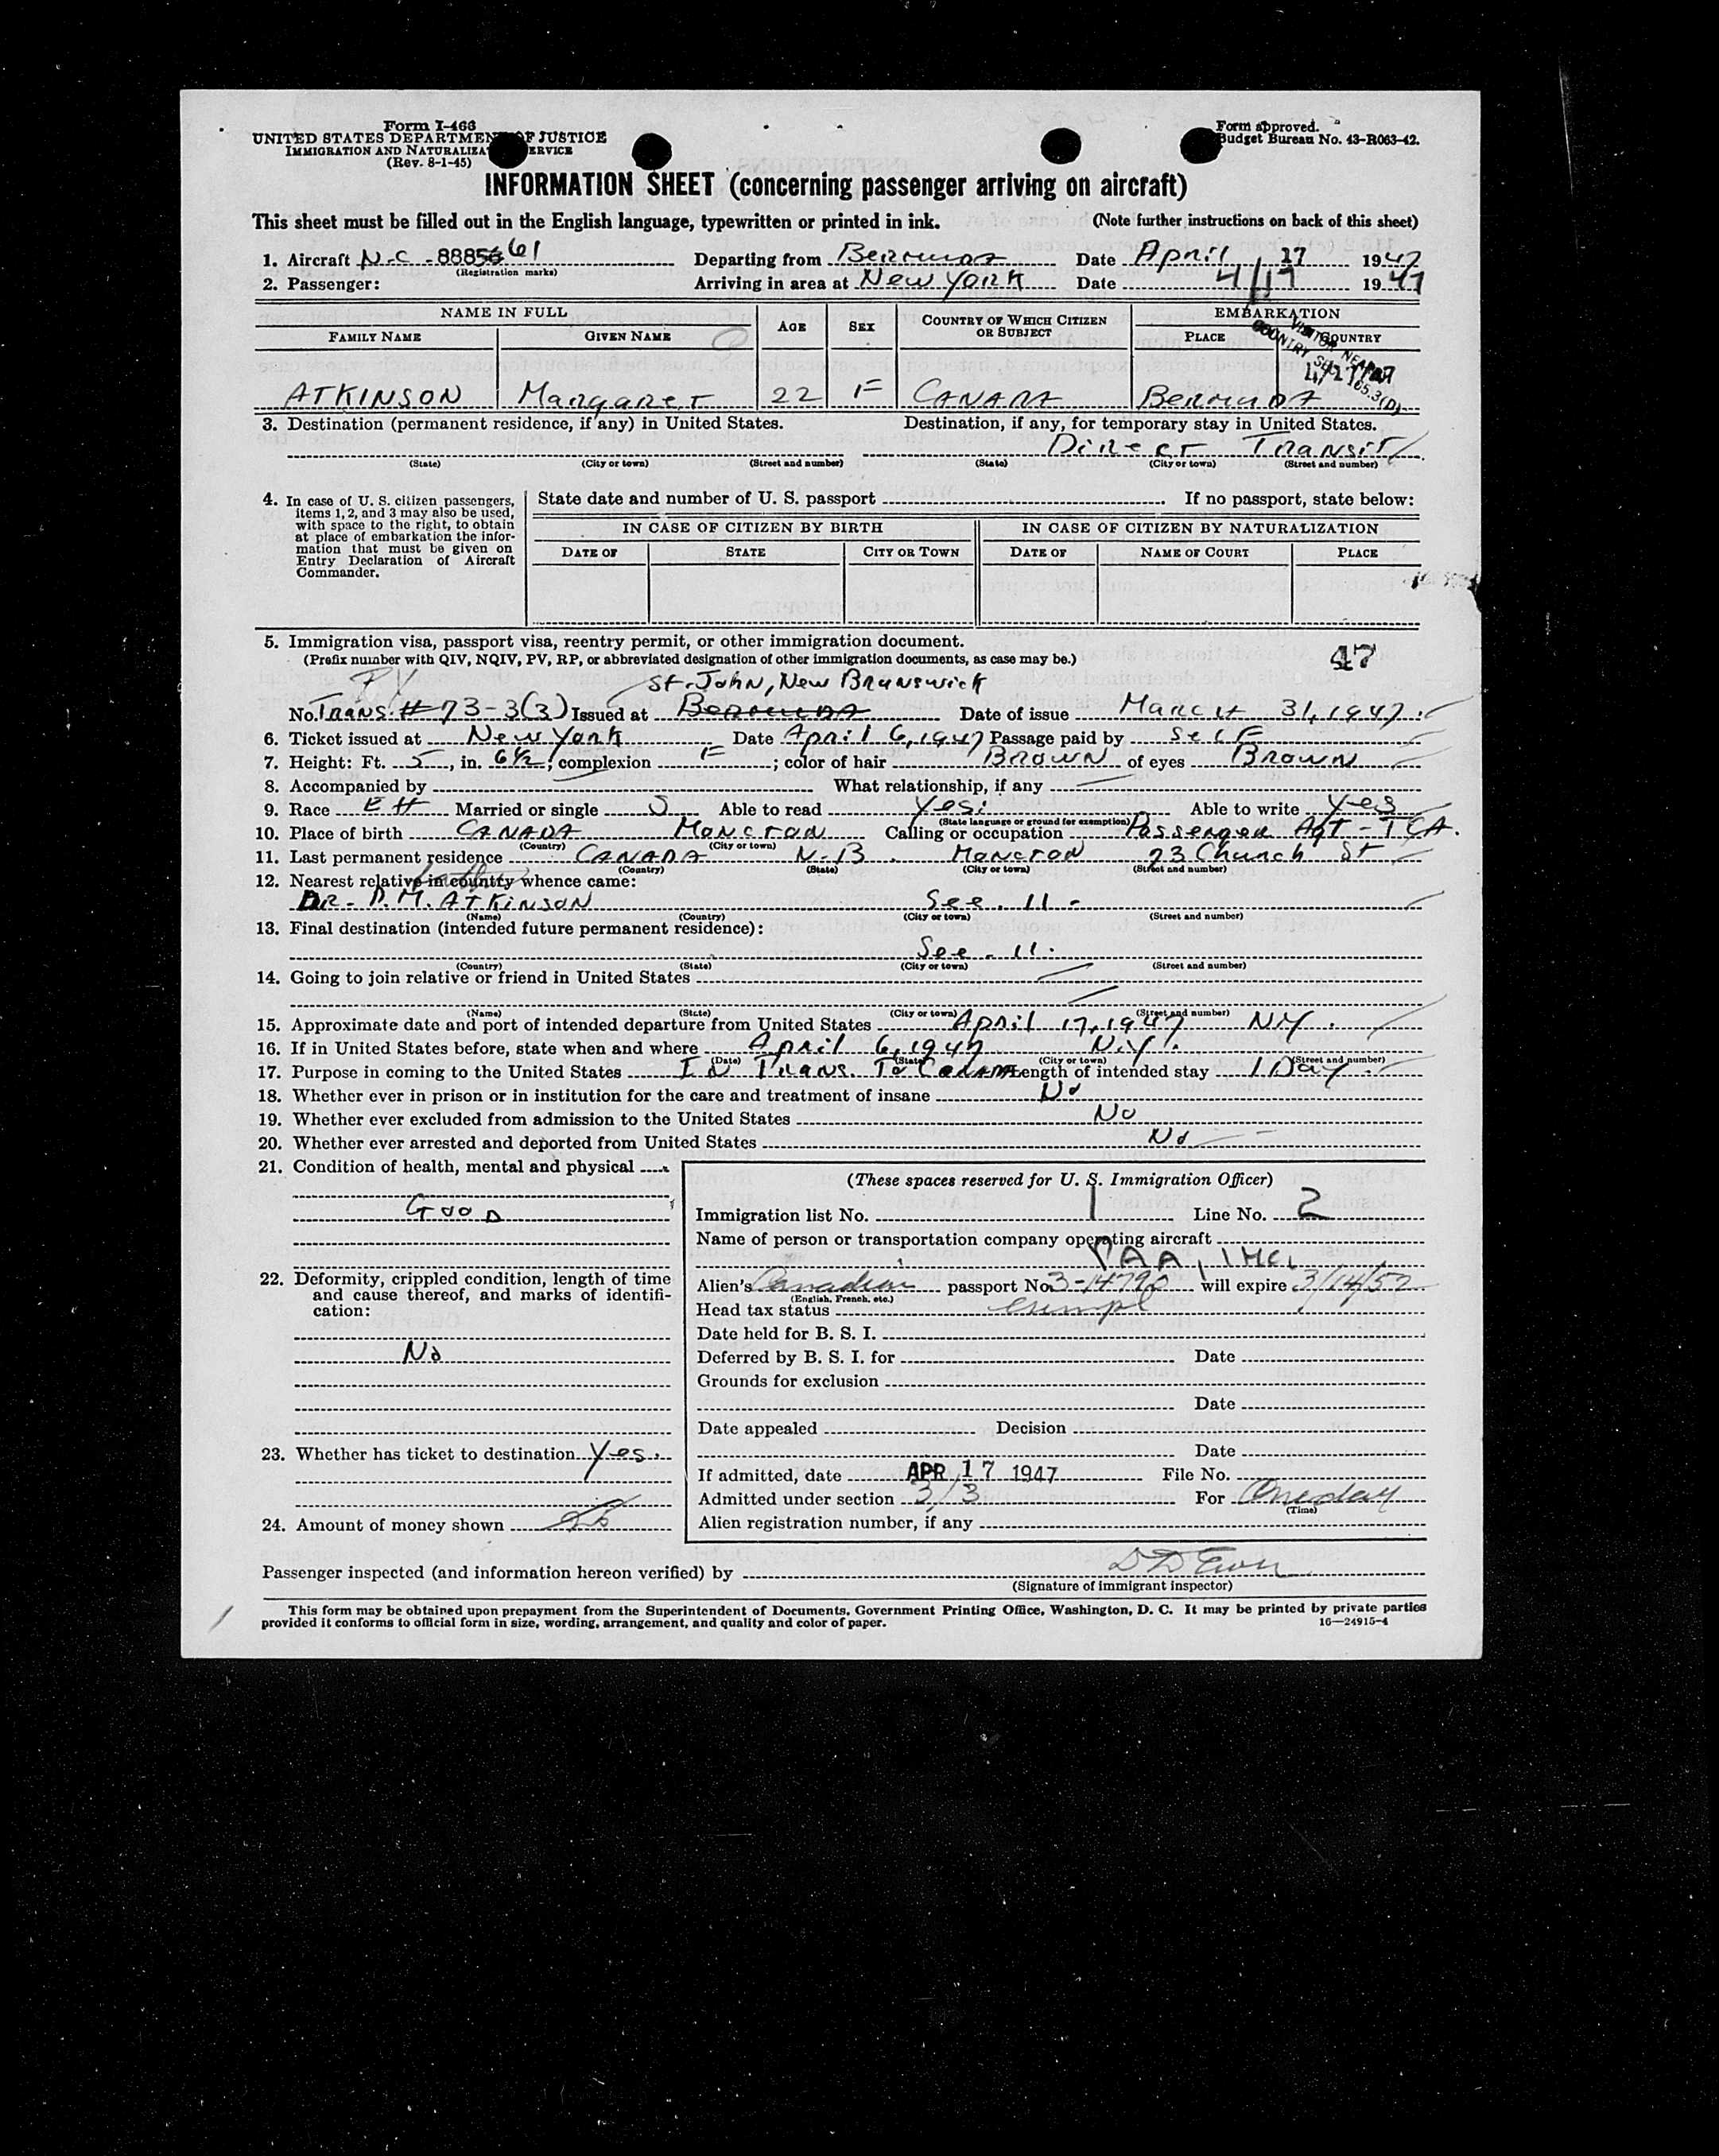 Form I-466
UNITED STATES DEPARTMENT OF JUSTICE
IMMIGRATION AND NATURALIZATION SERVICE
(Rev. 8-1-45)
Form approved.
Budget Bureau No. 43-R063-42.
INFORMATION SHEET (concerning passenger arriving on aircraft)
This sheet must be filled out in the English language, typewritten or printed in ink. (Note further instructions on back of this sheet)
1. Aircraft N-C-8885 61 Departing from Bermuda Date April 17 1947
(Registration marks)
2. Passenger: Arriving in area at New York Date 4/17 1947
NAME IN FULL AGE SEX COUNTRY OF WHICH CITIZEN OR SUBJECT EMBARKATION
FAMILY NAME GIVEN NAME PLACE COUNTRY
ATKINSON Margaret 22 F CANADA Bermuda
3. Destination (permanent residence, if any) in United States. Destination, if any, for temporary stay in United States.
Direct Transit
(State) (City or town) (Street and number) (State) (City or town) (Street and number)
4. In case of U. S. citizen passengers, items 1, 2, and 3 may also be used, with space to the right, to obtain at place of embarkation the information that must be given on Entry Declaration of Aircraft Commander.
State date and number of U. S. passport If no passport, state below:
IN CASE OF CITIZEN BY BIRTH IN CASE OF CITIZEN BY NATURALIZATION
DATE OF STATE CITY OR TOWN DATE OF NAME OF COURT PLACE
5. Immigration visa, passport visa, reentry permit, or other immigration document.
(Prefix number with QIV, NQIV, PV, RP, or abbreviated designation of other immigration documents, as case may be.) 47
PV St. John, New Brunswick
No. Trans. # 73-3(3) Issued at Bermuda Date of issue March 31, 1947
6. Ticket issued at New York Date April 6, 1947 Passage paid by Self
7. Height: Ft. 5, in. 6½; complexion F; color of hair Brown of eyes Brown
8. Accompanied by What relationship, if any
9. Race EH Married or single S Able to read Yes. Able to write Yes
(State language or ground for exemption)
10. Place of birth CANADA Moncton Calling or occupation Passenger Agt - TCA.
(Country) (City or town)
11. Last permanent residence CANADA N-B. Moncton 23 Church St
(Country) (State) (City or town) (Street and number)
12. Nearest relative in country whence came:
DR. D.M. ATKINSON See. 11 -
(Name) (Country) (City or town) (Street and number)
13. Final destination (intended future permanent residence):
See. 11.
(Country) (State) (City or town) (Street and number)
14. Going to join relative or friend in United States
(Name) (State) (City or town) (Street and number)
15. Approximate date and port of intended departure from United States April 17, 1947 NY.
16. If in United States before, state when and where April 6, 1947 N.Y.
(Date) (State) (City or town) (Street and number)
17. Purpose in coming to the United States IN Trans. To Canada Length of intended stay 1 Day.
18. Whether ever in prison or in institution for the care and treatment of insane No
19. Whether ever excluded from admission to the United States No
20. Whether ever arrested and deported from United States No
21. Condition of health, mental and physical
Good
22. Deformity, crippled condition, length of time and cause thereof, and marks of identification:
No
23. Whether has ticket to destination Yes.
24. Amount of money shown
(These spaces reserved for U. S. Immigration Officer)
Immigration list No. 1 Line No. 2
Name of person or transportation company operating aircraft
PAA, INC.
Alien's Canadian passport No. 3-14790 will expire 3/14/52
(English, French, etc.)
Head tax status exempt
Date held for B. S. I.
Deferred by B. S. I. for Date
Grounds for exclusion
Date
Date appealed Decision
Date
If admitted, date APR 17 1947 File No.
Admitted under section 3/3 For One day
(Time)
Alien registration number, if any
Passenger inspected (and information hereon verified) by
(Signature of immigrant inspector)
This form may be obtained upon prepayment from the Superintendent of Documents, Government Printing Office, Washington, D. C. It may be printed by private parties
provided it conforms to official form in size, wording, arrangement, and quality and color of paper. 16—24915-4